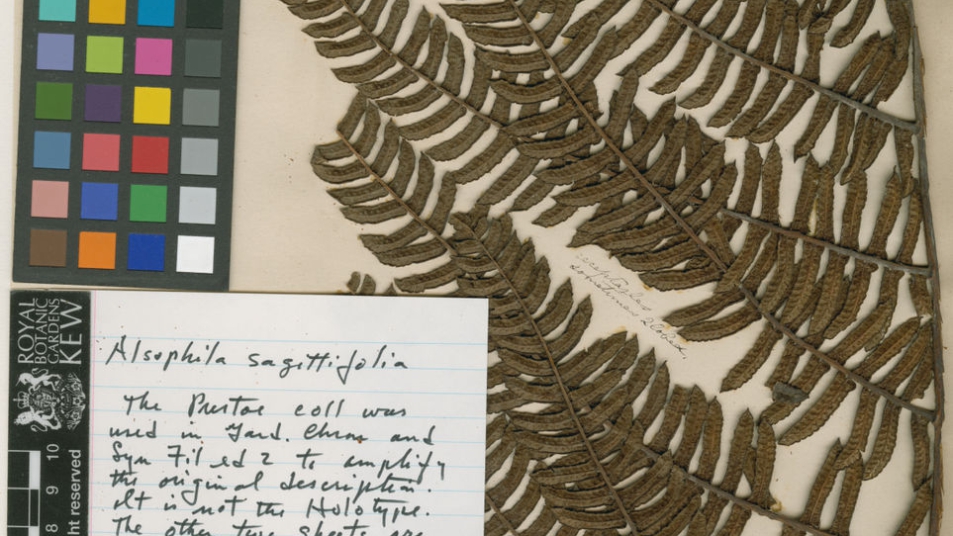 ROYAL
BOTANIC
GARDENS
KEW
ht reserved
10
9
8
Alsophila sagittifolia
The Prestoe coll was
used in Gard. Chron and
Syn Fil ed 2 to amplify
the original description.
It is not the Holotype.
The other two sheets are
sometimes